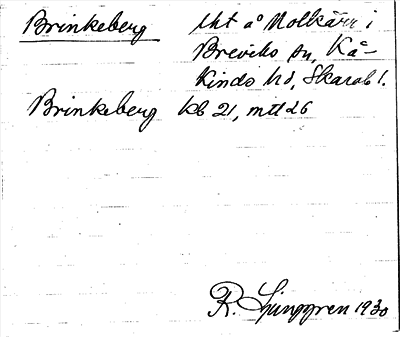 Brinkeberg lht å Molkärr i
Breviks sn, Kå-
kinds hd, Skarab l.
Brinkeberg kb 21, mtl 26
R. Ljunggren 1930